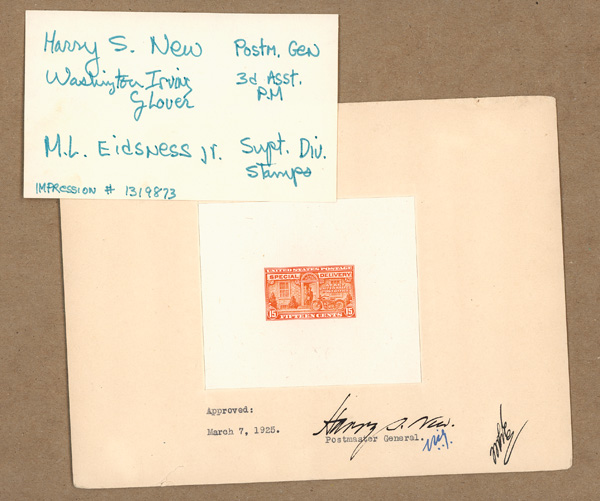 Harry S. New Postm. Gen
Washington Irving 3d Asst.
Glover P.M
M.L. Eidsness jr. Supt. Div.
Stamps
IMPRESSION # 1319873
UNITED STATES POSTAGE
SPECIAL DELIVERY
15 FIFTEEN CENTS 15
Approved:
March 7, 1925.
Harry S. New.
Postmaster General.